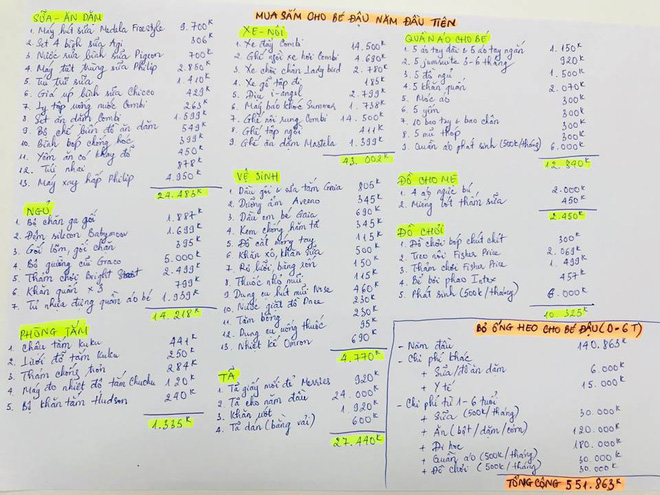 MUA SẮM CHO BÉ ĐẬU NĂM ĐẦU TIÊN
SỮA - ĂN DẶM
1. Máy hút sữa Medela Freestyle 9.700K
2. Set 4 bình sữa Agi 306K
3. Nước rửa bình sữa Pigeon 700K
4. Máy tiệt trùng sữa Philip 2.850K
5. Túi trữ sữa 1.410K
6. Giá úp bình sữa Chicco 429K
7. Ly tập uống nước Combi 263K
8. Set ăn dặm Combi 1.599K
9. Bộ chế biến đồ ăn dặm 549K
10. Bình bóp chống hóc 399K
11. Yếm ăn có khay đổ 450K
12. Túi nhai 878K
13. Máy xay hấp Philip 4.950K
24.483K
NGỦ
1. Bộ chăn ga gối 1.887K
2. Đệm silicon Babymoov 1.699K
3. Gối lõm, gối chặn 395K
4. Bộ giường cũi Graco 5.000K
5. Thảm chơi Bright 2.499K
6. Khăn quấn x 3 799K
7. Tủ nhựa đựng quần áo bé 1.939K
14.218K
PHÒNG TẮM
1. Chậu tắm Kuku 441K
2. Lưới đỡ tắm Kuku 250K
3. Thảm chống trơn 284K
4. Máy đo nhiệt độ tắm Chuchu 120K
5. Bộ khăn tắm Hudson 240K
1.335K
XE - NÔI
1. Xe đẩy Combi 14.500K
2. Ghế ngồi xe hơi Combi 4.690K
3. Xe chòi chân Lady bird 2.780K
4. Xe gỗ tập đi 185K
5. Địu i-angel 2.799K
6. Máy báo khóc Summer 1.738K
7. Ghế nôi rung Combi 14.500K
8. Ghế tập ngồi 411K
9. Ghế ăn dặm Mastela 1.399K
43.002K
VỆ SINH
1. Dầu gội & sữa tắm Gaia 805K
2. Dưỡng ẩm Aveno 345K
3. Dầu em bé Gaia 690K
4. Kem chống hăm tã 345K
5. Đồ cắt móng tay 115K
6. Khăn xô, khăn sữa 500K
7. Rơ lưỡi, băng rốn 150K
8. Thuốc nhỏ mũi 115K
9. Dụng cụ hút mũi 460K
10. Nước giặt đồ Dnee 230K
11. Tăm bông 230K
12. Dụng cụ uống thuốc 95K
13. Nhiệt kế Omron 690K
4.770K
TÃ
1. Tã giấy mới đẻ Merries 920K
2. Tã cho năm đầu 24.000K
3. Khăn ướt 1.920K
4. Tã dán (bằng vải) 600K
27.440K
QUẦN ÁO CHO BÉ
1. 5 áo tay dài & 5 áo tay ngắn 1.150K
2. 5 jumsuits 3-6 tháng 920K
3. 5 đồ ngủ 1.500K
4. 5 khăn quấn 2.070K
5. Móc áo 300K
6. 5 yếm 300K
7. 10 bao tay & bao chân 300K
8. 5 mũ thóp 300K
9. Quần áo phát sinh (500K/tháng) 6.000K
12.840K
ĐỒ CHO MẸ
1. 4 áo ngực bú 2.000K
2. Miếng lót thấm sữa 450K
2.450K
ĐỒ CHƠI
1. Đồ chơi bóp chút chít 300K
2. Treo nôi Fisher Price 2.069K
3. Thảm chơi Fisher Price 1.499K
4. Bể bơi phao Intex 457K
5. Phát sinh (500K/tháng) 6.000K
10.325K
BỎ ỐNG HEO CHO BÉ ĐẬU (0-6T)
- Năm đầu 140.863K
- Chi phí khác
+ Sữa/đồ ăn dặm 6.000K
+ Y tế 15.000K
- Chi phí từ 1-6 tuổi
+ Sữa (500K/tháng) 30.000K
+ Ăn (bột/dặm/cơm) 120.000K
+ Đi học 180.000K
+ Quần áo (500K/tháng) 30.000K
+ Đồ chơi (500K/tháng) 30.000K
TỔNG CỘNG 551.863K